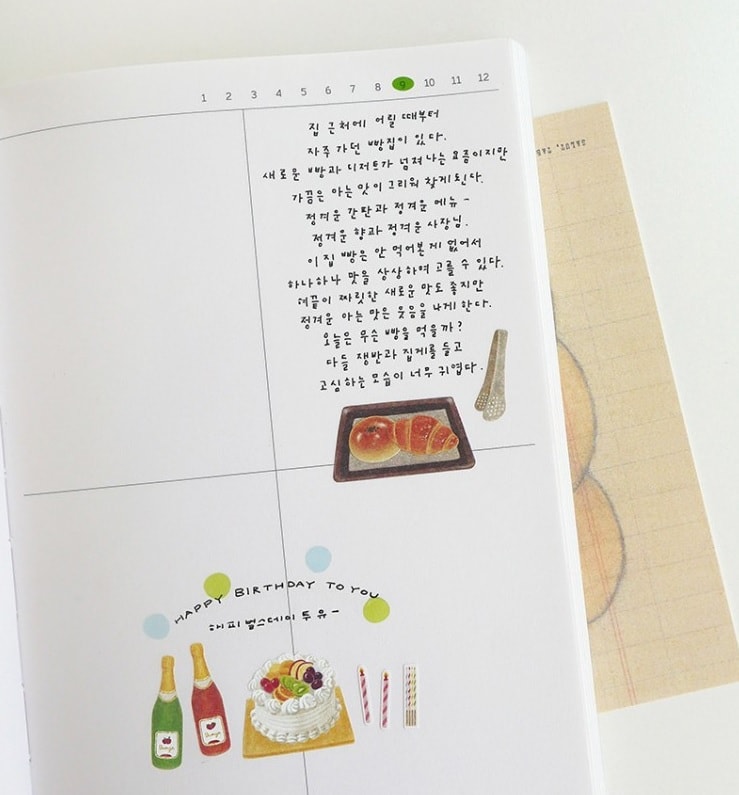 1 2 3 4 5 6 7 8 9 10 11 12
집 근처에 어릴 때부터
자주 가던 빵집이 있다.
새로운 빵과 디저트가 넘쳐나는 요즘이지만
가끔은 아는 맛이 그리워 찾게된다.
정겨운 간판과 정겨운 메뉴-
정겨운 향과 정겨운 사장님.
이 집 빵은 안 먹어본게 없어서
하나하나 맛을 상상하며 고를 수 있다.
혀끝이 짜릿한 새로운 맛도 좋지만
정겨운 아는 맛은 웃음을 나게 한다.
오늘은 무슨 빵을 먹을까?
다들 쟁반과 집게를 들고
고심하는 모습이 너무 귀엽다.
HAPPY BIRTHDAY TO YOU
해피 벌스데이 투 유-